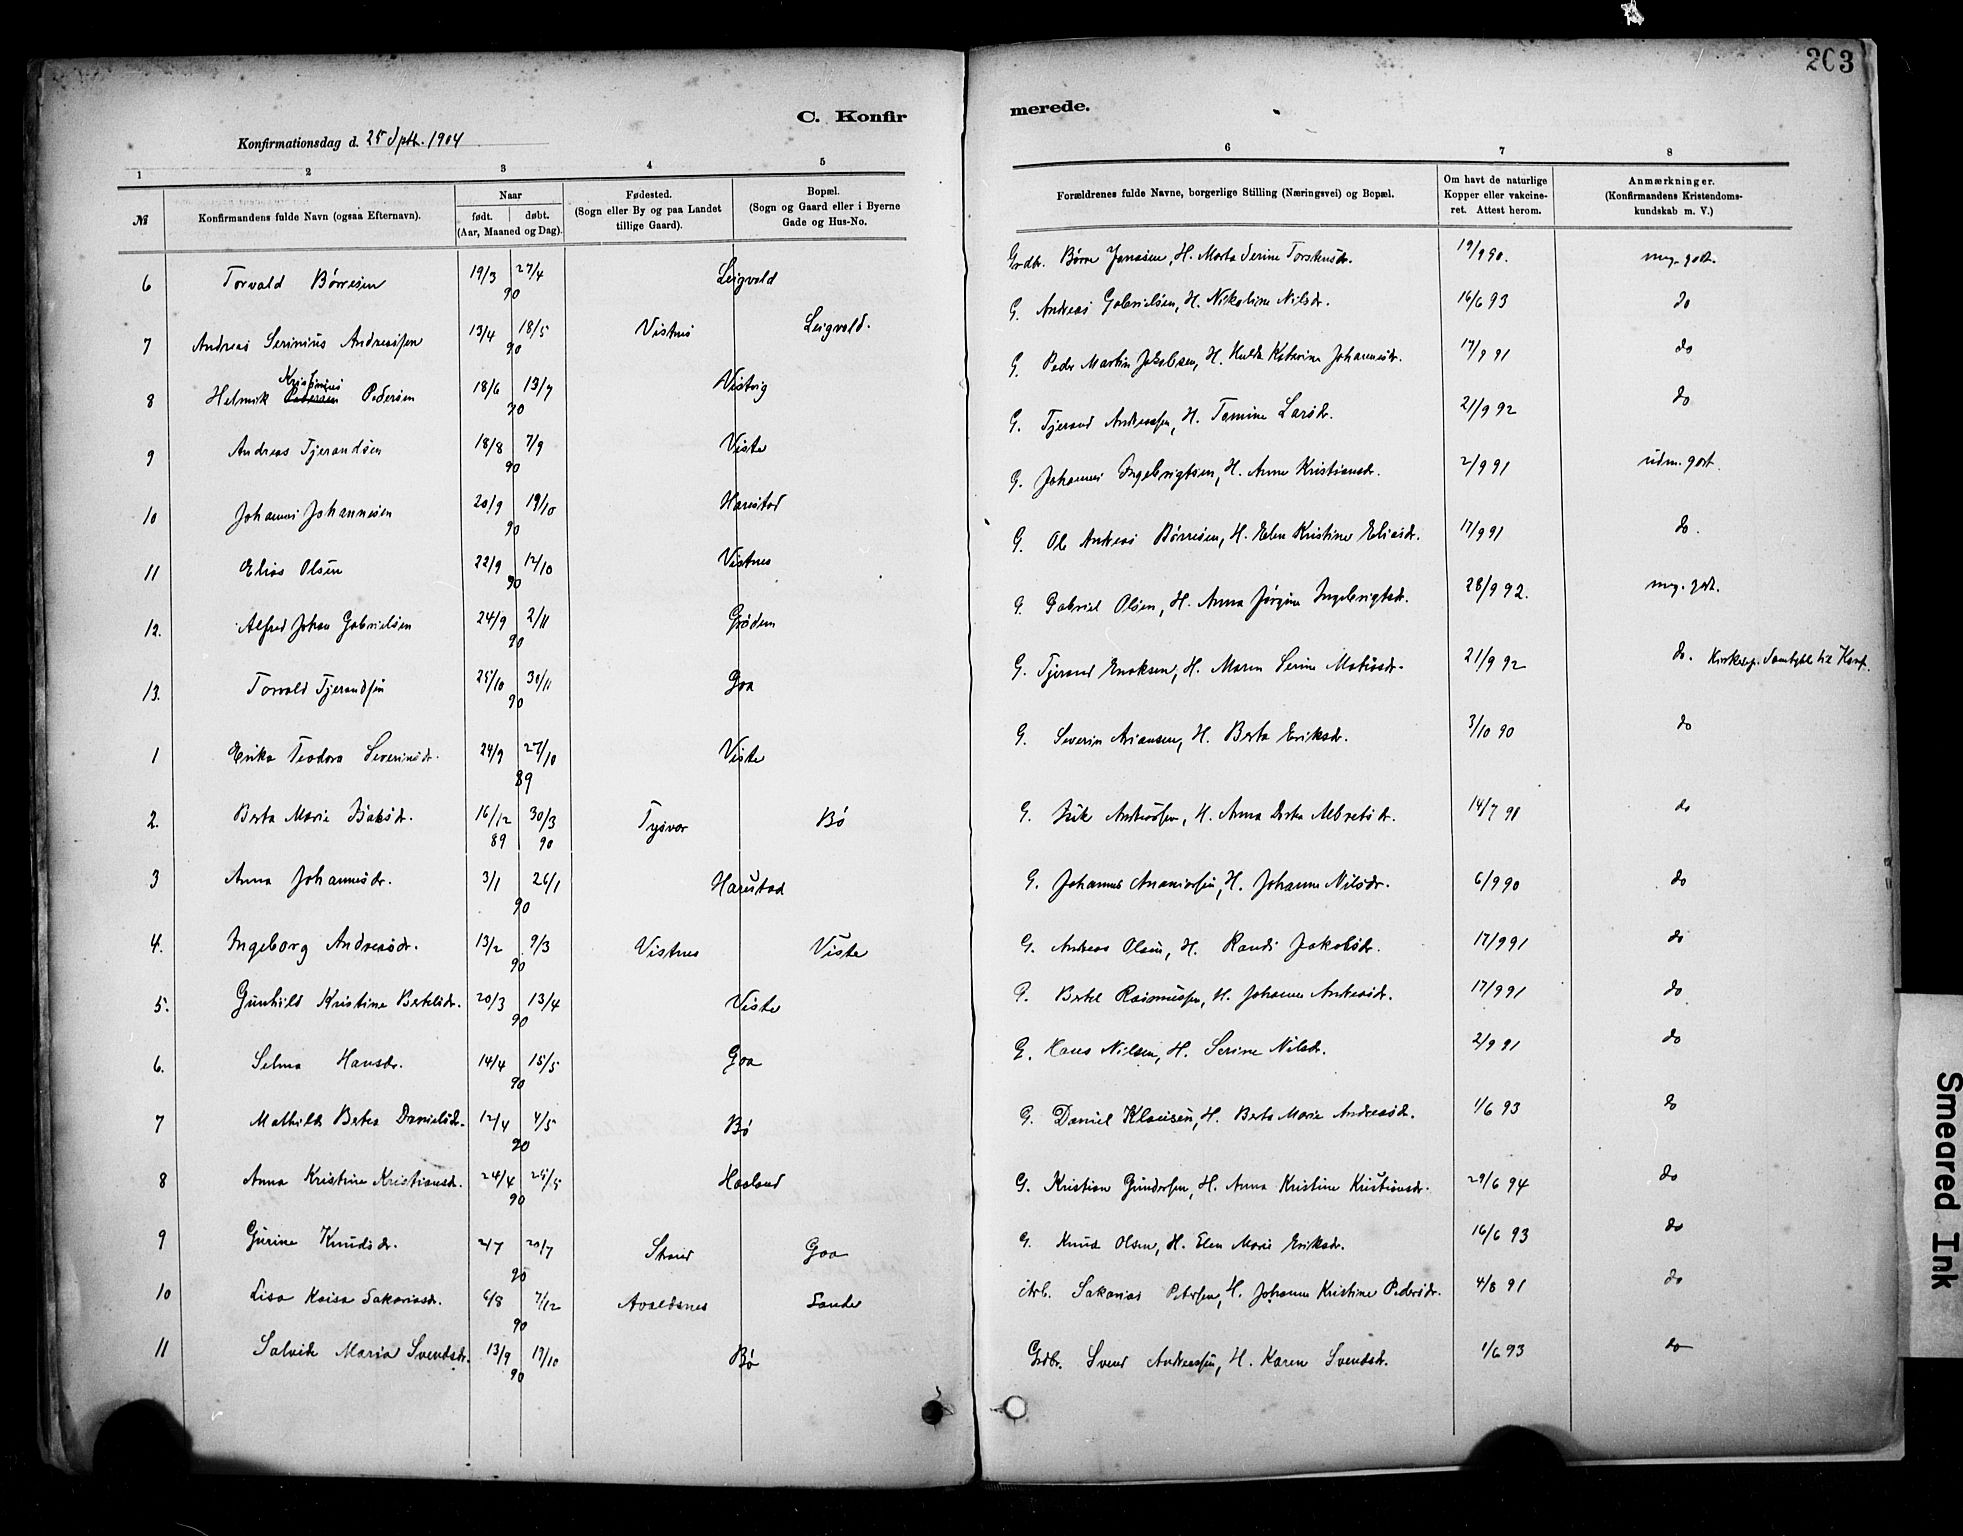 203
C. Konfirmerede.
Konfirmationsdag d. 25 Sptb. 1904
1 2 3 4 5 6 7 8
№
Konfirmandens fulde Navn (ogsaa Efternavn).
Naar
født. | døbt.
(Aar, Maaned og Dag).
Fødested.
(Sogn eller By og paa Landet
tillige Gaard).
Bopæl.
(Sogn og Gaard eller i Byerne
Gade og Hus-No.
Forældrenes fulde Navne, borgerlige Stilling (Næringsvei) og Bopæl.
Om havt de naturlige
Kopper eller vakcine-
ret. Attest herom.
Anmærkninger.
(Konfirmandens Kristendoms-
kundskab m. V.)
6 Torvald Børresen 19/3 27/4 90 Leigvold Grdbr. Børre Jonasen, H. Marta Serine Torstensdr. 19/9 90. meg. godt.
7 Andreas Serinius Andreassen 13/4 18/5 90 Vistnes Leigvold. G. Andreas Gabrielsen, H. Nikoline Nilsdr. 16/6 93 do
8 Helmik Kristinius Pedersen 18/6 13/7 90 Vistvig G. Peder Martin Jakobsen, H. Hulda Katarina Johannesdr. 17/9 91 do
9 Andreas Tjerandsen 18/8 7/9 90 Viste G. Tjerand Andreassen, H. Tomine Larsdr. 21/9 92 do
10 Johannes Johannesen 20/9 19/10 90 Harestad G. Johannes Ingebrigtsen, H. Anne Kristiansdr. 2/9 91 udm. godt.
11 Elias Olsen 22/9 12/10 90 Vistnes G. Ole Andreas Børresen, H. Elen Kristine Eliasdr. 17/9 91 do.
12. Alfred Johan Gabrielsen 24/9 2/11 90 Grødem G. Gabriel Olsen, H. Anna Jørgine Ingebrigtsdr. 28/9 92. meg. godt.
13. Torvald Tjerandsen 25/10 30/11 90 Goa G. Tjerand Enoksen, H. Maren Serine Matiasdr. 21/9 92 do. Kirkedep. Samtykke til Konf.
1 Erika Teodora Severinsdr. 24/9 27/10 89 Viste G. Severin Ariansen, H. Berta Eriksdr. 3/10 90 do
2. Berta Marie Isaksdr. 16/12 89 30/3 90 Tysvær Bø G. Isak Andreassen, H. Anna Dorthea Albretsdr. 14/7 91 do
3 Anna Johannesdr. 3/1 26/1 90 Harestad G. Johannes Ananiassen, H. Johanne Nilsdr. 6/9 90 do
4. Ingeborg Andreasdr. 13/2 9/3 90 Vistnes Viste G. Andreas Olsen, H. Randi Jakobsdr. 17/9 91 do
5. Gunhild Kristine Bertelsdr. 20/3 13/4 90 Viste G. Bertel Rasmussen, H. Johanne Andreasdr. 17/9 91 do
6. Selma Hansdr. 14/4 15/5 90 Goa G. Hans Nilsen, H. Serine Nilsdr. 2/9 91 do
7 Mathilde Berta Danielsdr. 12/4 4/5 90 Bø G. Daniel Klausen, H. Berta Marie Andreasdr. 1/6 93 do
8 Anna Kristine Kristiansdr. 24/4 25/5 90 Haaland G. Kristian Gundersen, H. Anna Kristine Kristiansdr. 29/6 94 do
9 Gurine Knudsdr. 2/7 20/7 90 Strand Goa G. Knud Olsen, H. Elen Marie Eriksdr. 16/6 93 do
10 Lisa Kaisa Sakariasdr. 6/8 7/12 90 Avaldsnes Sande Arb. Sakarias Petersen, H. Johanne Kristine Pedersdr. 4/8 91 do
11 Salvide Maria Svendsdr. 13/9 19/10 90 Bø Grdbr. Svend Andreassen, H. Karen Svendsdr. 1/6 93 do
Smeared Ink